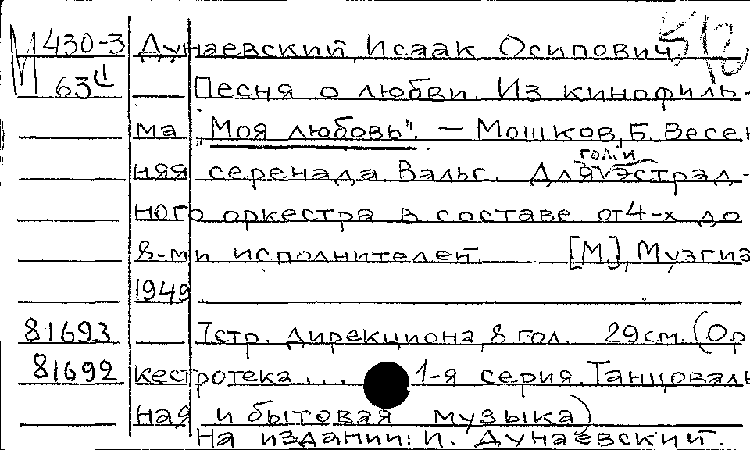 М 430-3 Дунаевский, Исаак Осипович
63 Песня о любви. Из кинофиль-
ма "Моя любовь". — Мошков, Б. Весен
няя серенада. Вальс. Для эстрад-
ного оркестра в составе от 4-х до
8-ми исполнителей. [М.], Музгиз
1949.
81693 7 стр. дирекциона, 8 гол. 29 см. (Ор
81692 кестротека... 1-я серия. Танцоваль
ная и бытовая музыка)
На издании: И. Дунаевский.